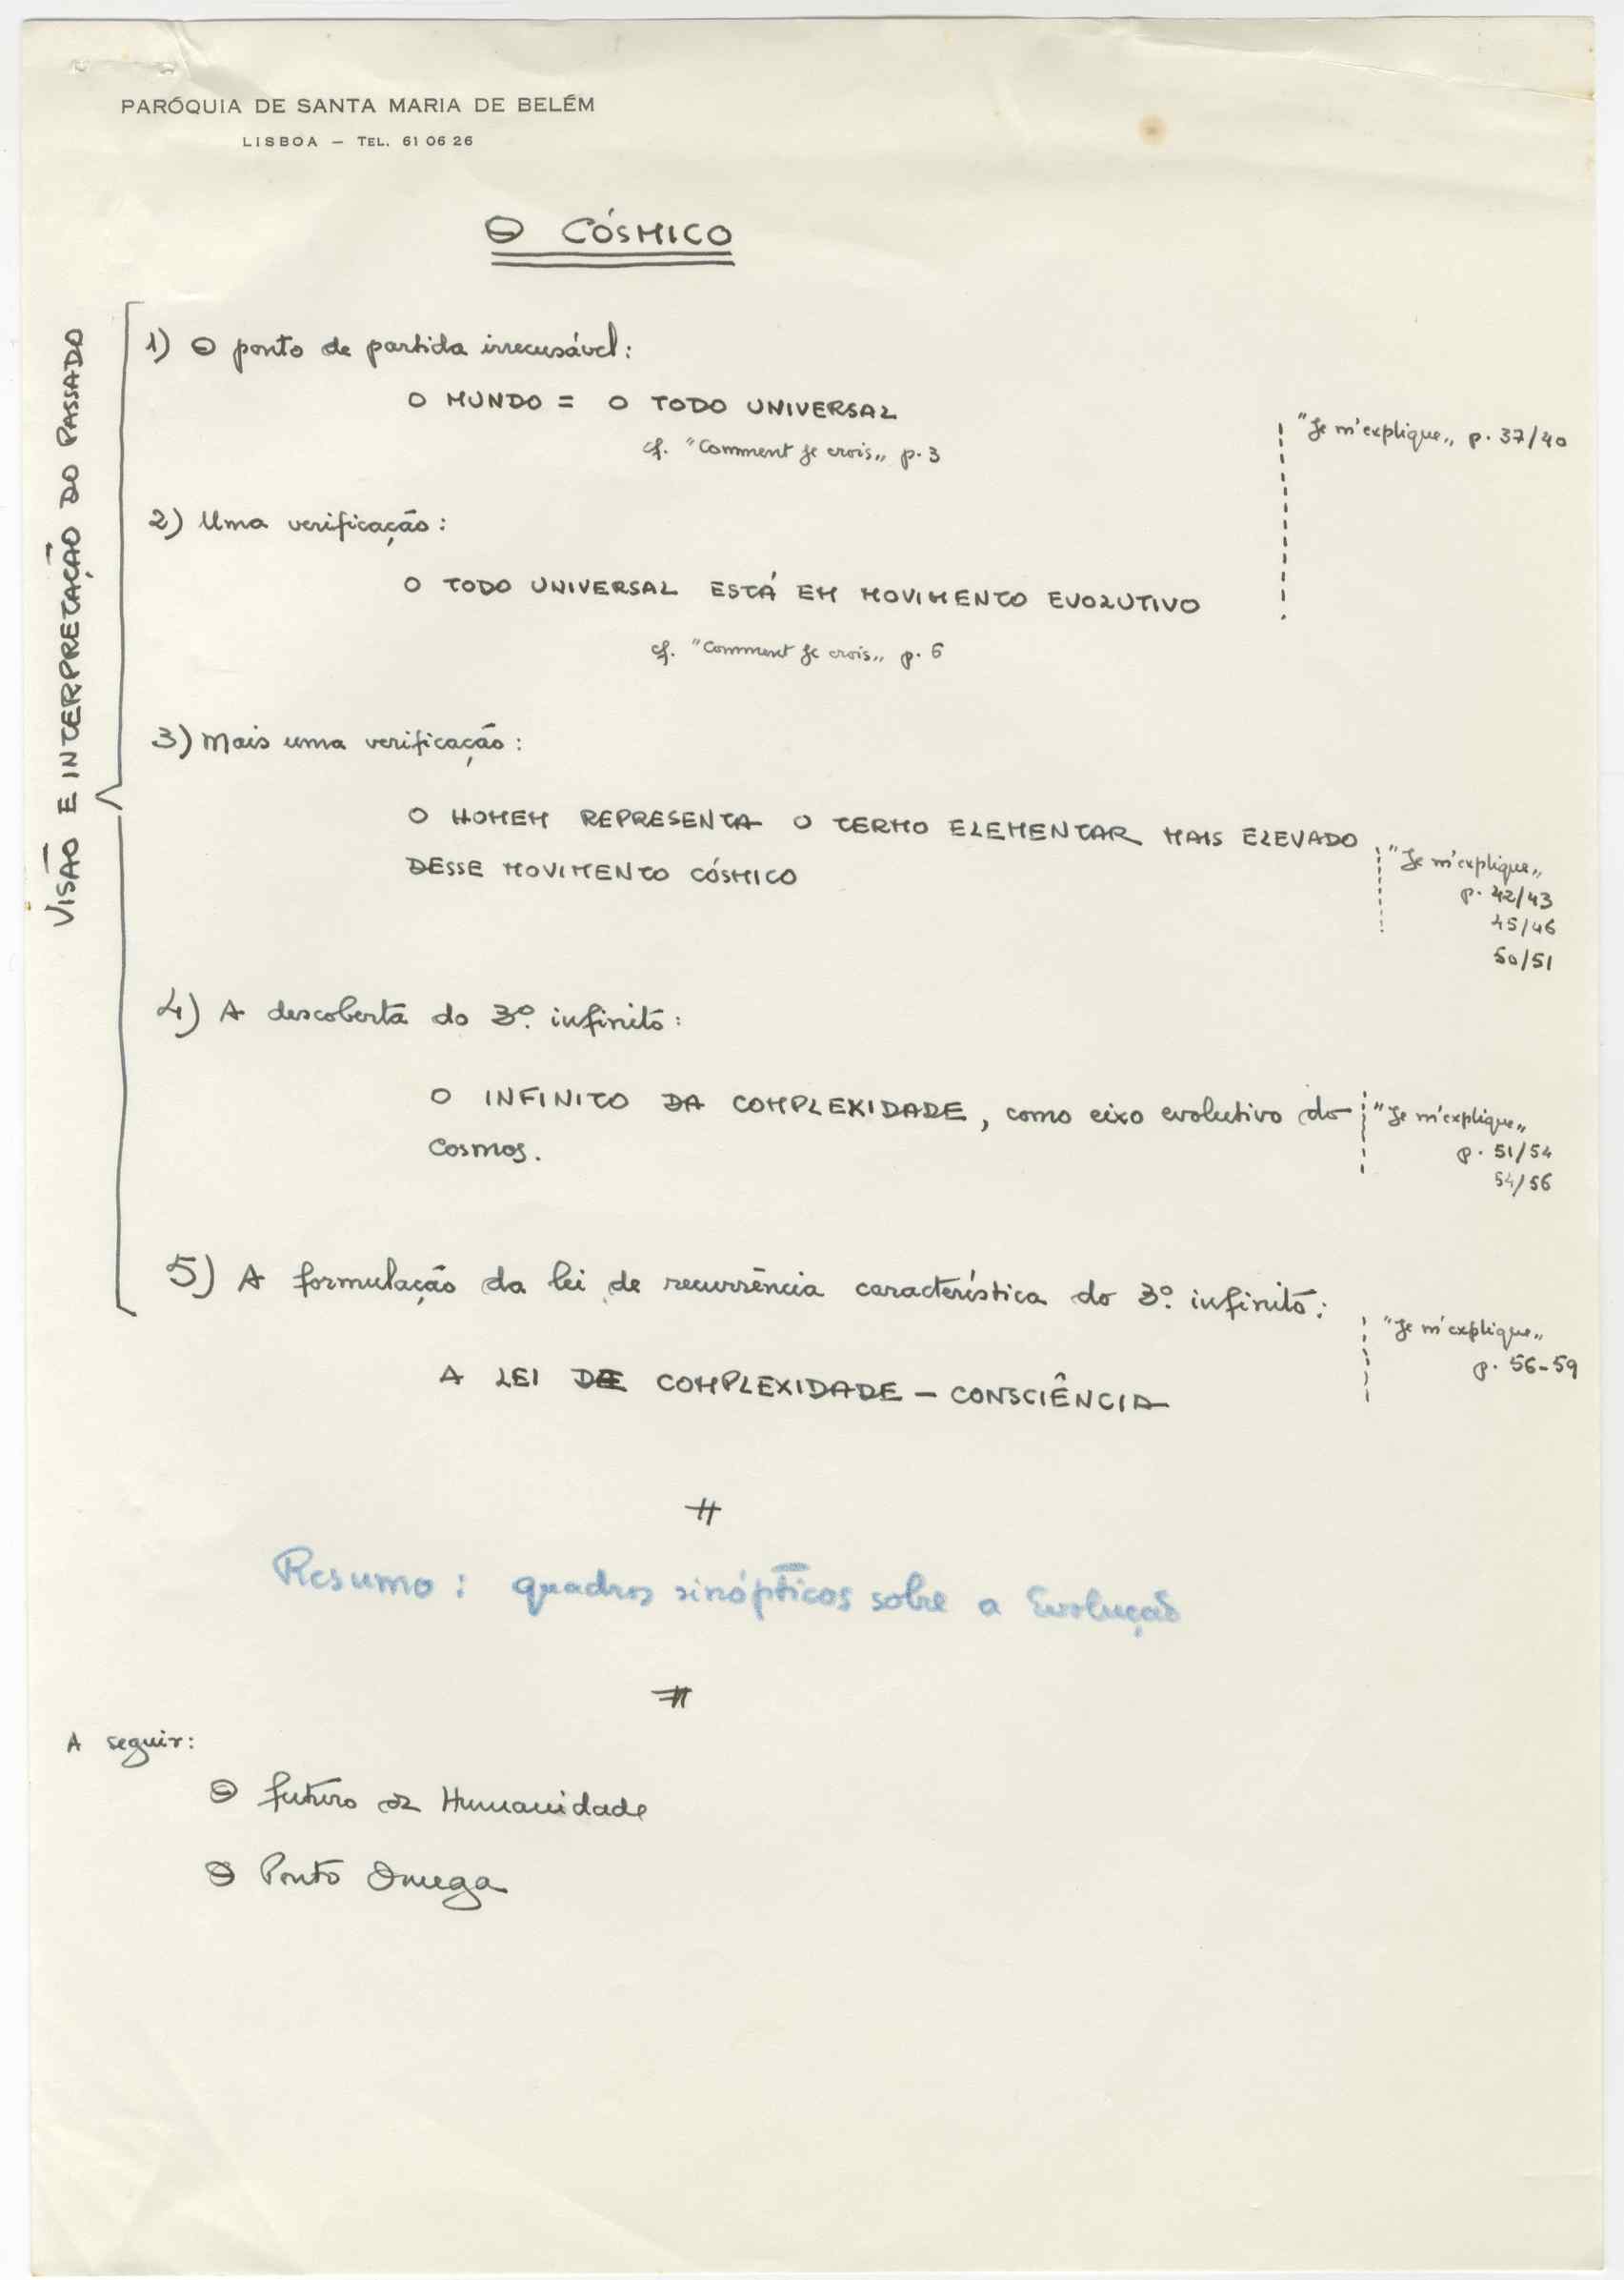 PARÓQUIA DE SANTA MARIA DE BELÉM
LISBOA — TEL. 61 06 26
O CÓSMICO
VISÃO E INTERPRETAÇÃO DO PASSADO
1) O ponto de partida irrecusável:
O MUNDO = O TODO UNIVERSAL
cf. "Comment je crois" p. 3
"Je m'explique" p. 37/40
2) Uma verificação:
O TODO UNIVERSAL ESTÁ EM MOVIMENTO EVOLUTIVO
cf. "Comment je crois" p. 6
3) Mais uma verificação:
O HOMEM REPRESENTA O TERMO ELEMENTAR MAIS ELEVADO
DESSE MOVIMENTO CÓSMICO
"Je m'explique"
p. 42/43
45/46
50/51
4) A descoberta do 3º. infinito:
O INFINITO DA COMPLEXIDADE, como eixo evolutivo do
Cosmos.
"Je m'explique"
p. 51/54
54/56
5) A formulação da lei de recurrência característica do 3º. infinito:
A LEI DE COMPLEXIDADE — CONSCIÊNCIA
"Je m'explique"
p. 56-59
#
Resumo: quadros sinópticos sobre a Evolução
#
A seguir:
O futuro da Humanidade
O Ponto Omega